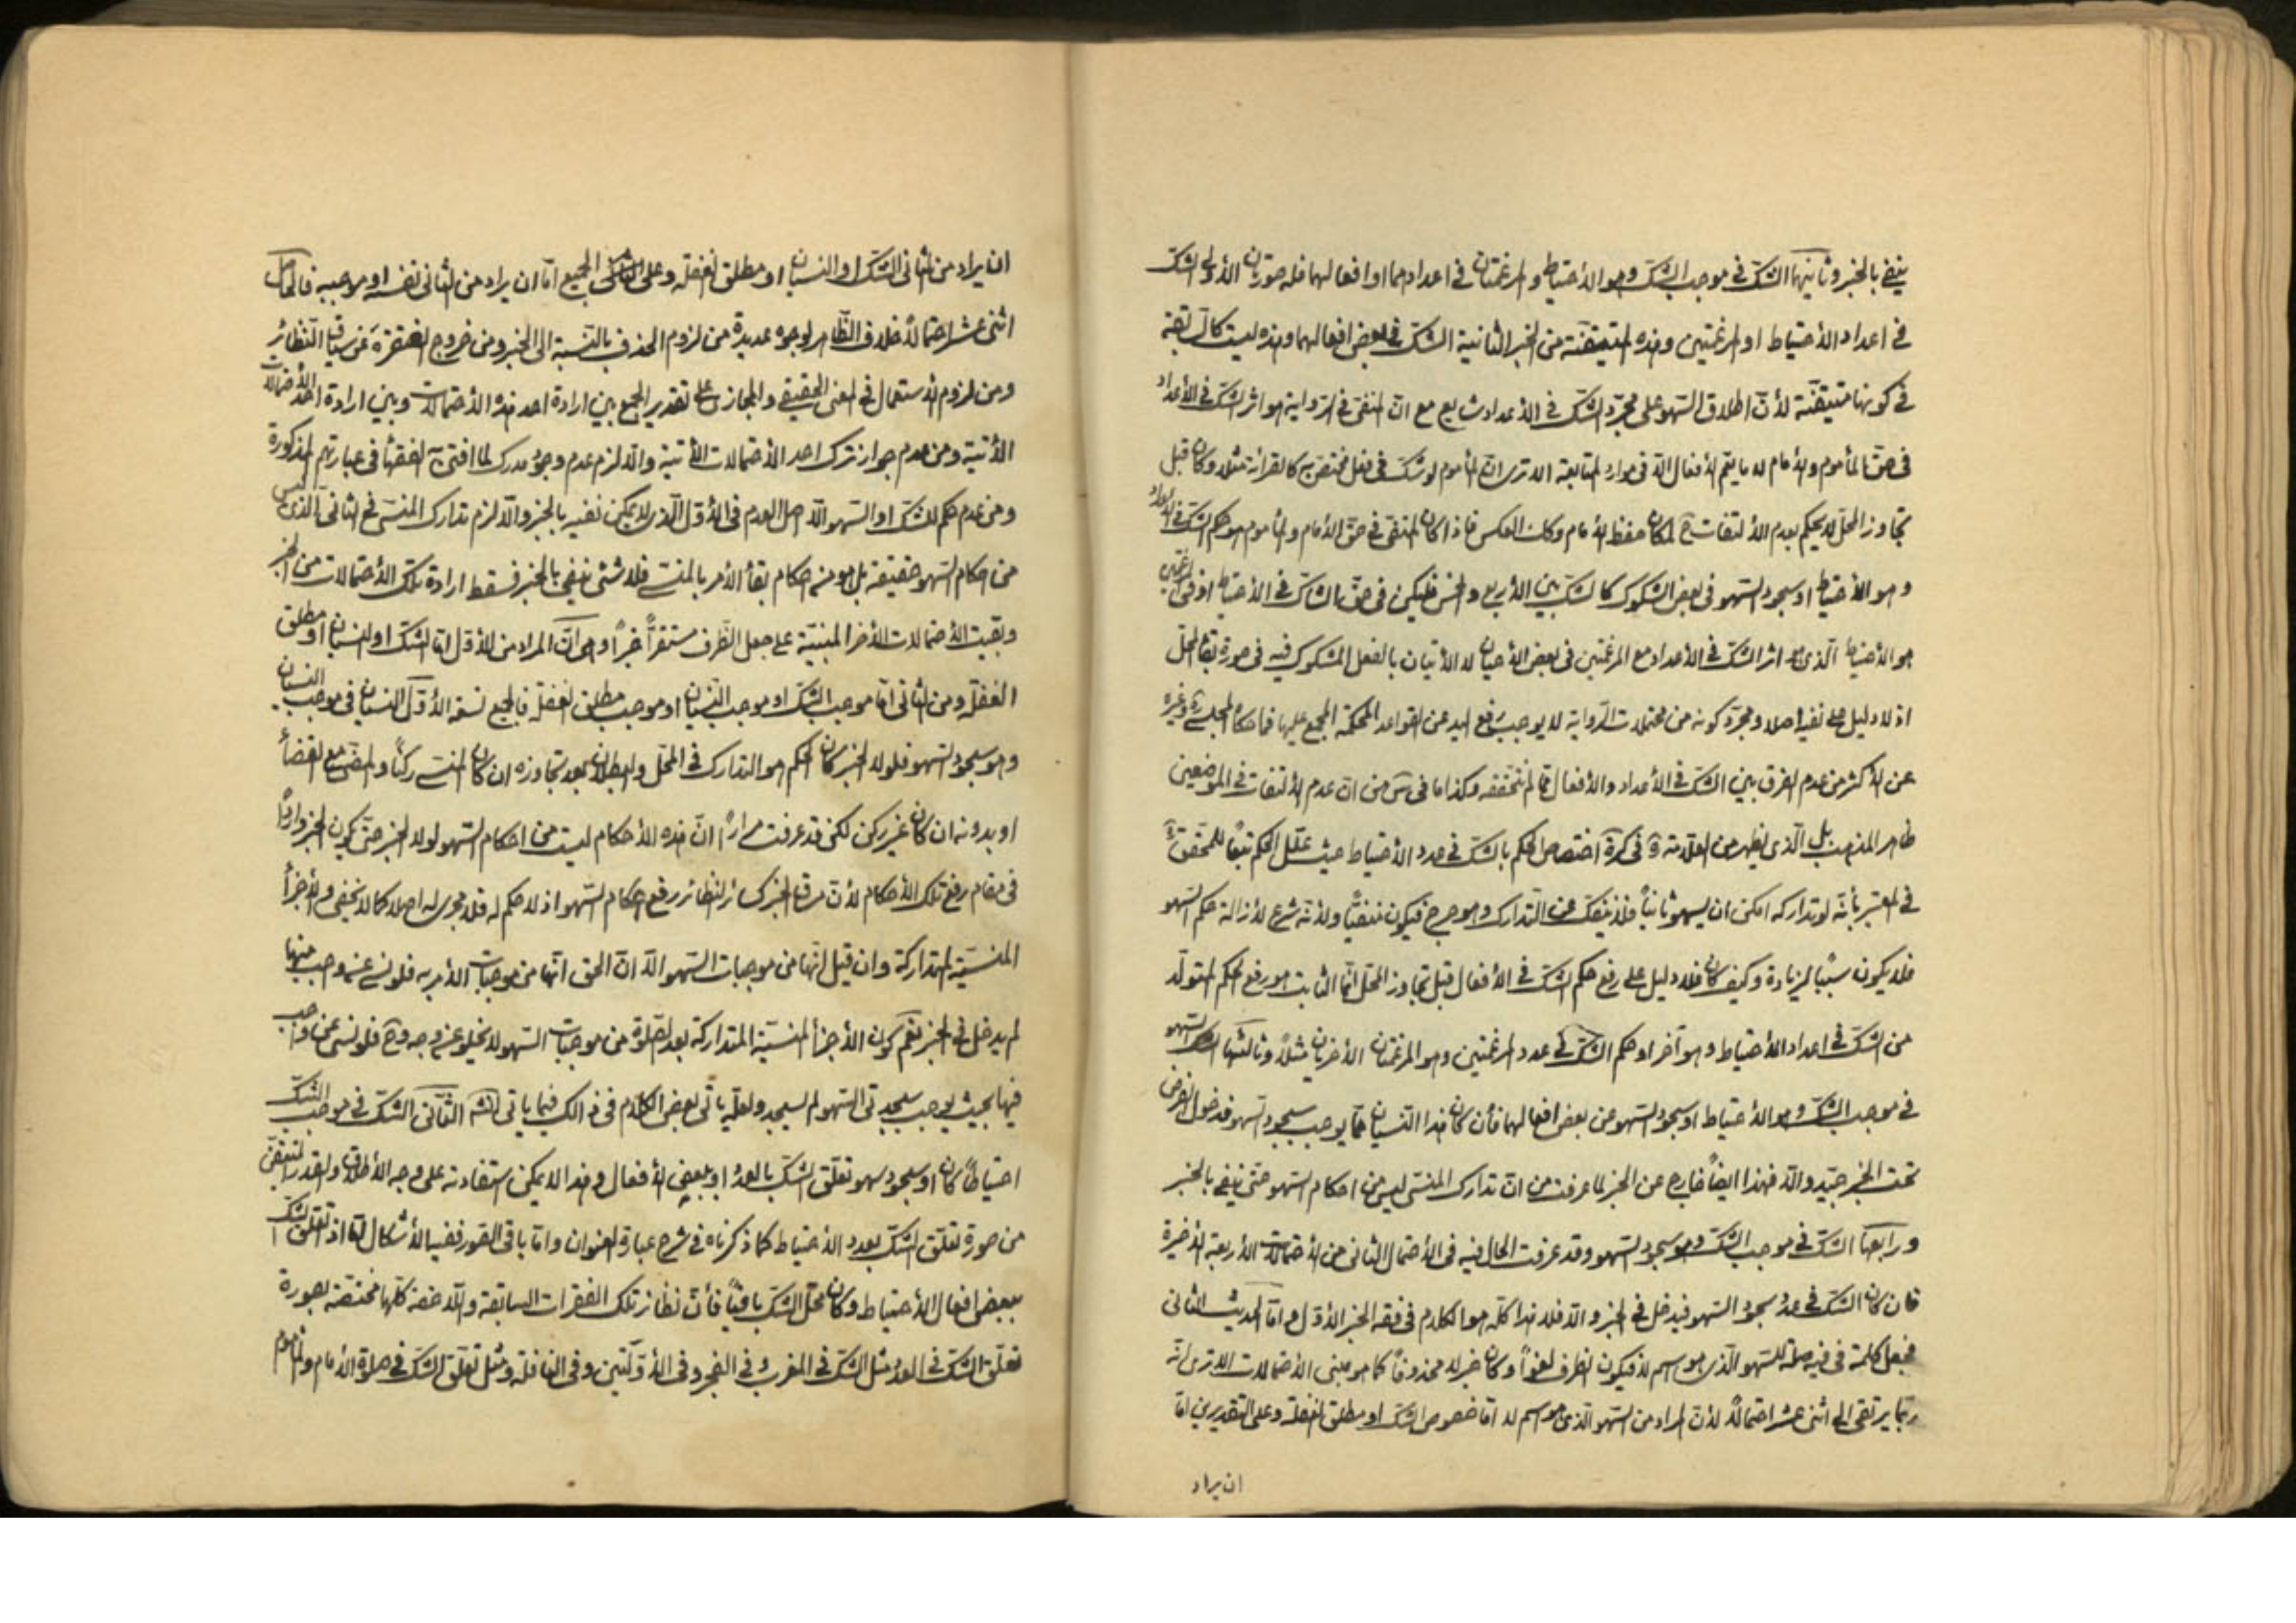 ينفى بالخبر وثانيها الشك فى موجب الشك وهو الأحتياط والمرغمتان فى اعدادهما او افعالهما فله صورتان الأولى الشك
فى اعداد الأحتياط او المرغمتين وهذه المتيقنة من الخبر الثانية الشك فى بعض افعالهما وهذه ليست كالسابقة
فى كونها متيقنة لأن اطلاق السهو على مجرد الشك فى الأعداد شايع مع ان المنفى فى الرواية هو اثر الشك فى الأعداد
فى حق المأموم والأمام لا ما يعم الأفعال الا فى موارد المتابعة الا ترى ان المأموم لو شك فى فعل مختص به كالقرائة مثلا وكان قبل
تجاوز المحل لا يحكم بعدم الألتفات ح لمكان حفظ الأمام وكذا العكس فاذا كان المنفى فى حق الأمام والمأموم هو حكم الشك فى الأعداد
وهو الأحتياط او سجود السهو فى بعض الشكوك كالشك بين الأربع والخمس فليكن فى حق الشاك فى الأحتياط او فى المرغمتين
هو الأحتياط الذى هو اثر الشك فى الأعداد مع المرغمتين فى بعض الأحيان لا الأتيان بالفعل المشكوك فيه فى صورة بقاء المحل
اذ لا دليل على نفيه اصلا ومجرد كونه من محتملات الرواية لا يوجب رفع اليد عن القواعد المحكمة المجمع عليها فما حكاه المجلسى ره وغيره
عن الأكثر من عدم الفرق بين الشك فى الأعداد والأفعال مما لم نتحققه وكذا ما فى من ان عدم الألتفات فى الموضعين
ظاهر المذهب بل الذى يظهر من العلامة ره فى كرة اختصاص الحكم بالشك فى عدد الأحتياط حيث علل الحكم تبعا للمحقق ره
فى المعتبر بأنه لو تداركه امكن ان يسهو ثانيا فلا ينفك عن التدارك وهو حرج فيكون منفيا ولأنه شرع لأزالة حكم السهو
فلا يكون سببا لزيادة وكيف كان فلا دليل على رفع حكم الشك فى الأفعال قبل تجاوز المحل انما الثابت هو رفع الحكم المتولد
من الشك فى اعداد الأحتياط وهو آخر او حكم الشك فى عدد المرغمتين وهو المرغمتان الأخريان مثلا وثالثها السهو
فى موجب الشك وهو الأحتياط او سجود السهو عن بعض افعالهما فأن كان هذا النسيان مما يوجب سجود السهو فدخول الفرض
تحت الخبر جيد والا فهذا ايضا خارج عن الخبر لما عرفت من ان تدارك المنسى ليس من احكام السهو حتى ينفى بالخبر
ورابعها الشك فى موجب الشك وهو سجود السهو وقد عرفت الحال فيه فى الأحتمال الثانى من الأحتمالات الأربعة الأخيرة
فان كان الشك فى عدد سجود السهو فيدخل فى الخبر والا فلا هذا كله هو الكلام فى فقه الخبر الأول واما الحديث الثانى
فجعل كلمة فى فيه صلة للسهو الذى هو اسم لا فيكون الظرف لغوا وكان خبر لا محذوفا كما هو مبنى الأحتمالات الا ترى انه
ربما يرتقى الى اثنى عشر احتمالا لأن المراد من السهو الذى هو اسم لا اما خصوص الشك او مطلق الغفلة وعلى التقديرين اما
ان يراد
ان يراد من الثانى الشك او النسيان او مطلق الغفلة وعلى الجميع اما ان يراد من الثانى نفسه او موجبه فالحاصل
اثنى عشر احتمالا خلاف الظاهر لوجوه عديدة من لزوم الحذف بالنسبة الى الخبر ومن خروج الفقرة عن سياق النظائر
ومن لزوم الأستعمال فى المعنى الحقيقى والمجازى على تقدير الجمع بين ارادة احد هذه الأحتمالات وبين ارادة احد الأحتمالات
الأتية ومن عدم جواز ترك احد الأحتمالات الأتية والا لزم عدم وجود مدرك لما افتى به الفقهاء فى عبارتهم المذكورة
ومن عدم حكم للشك او السهو الا اصل العدم فى الأول الذى لا يمكن نفيه بالخبر والا لزم تدارك المنسى فى الثانى الذى ليس
من احكام السهو حقيقة بل هو من احكام بقاء الأمر بالمنسى فلا شئ ينفى بالخبر فسقط ارادة تلك الأحتمالات من الخبر
وبقيت الأحتمالات الأخر المبنية على جعل الظرف مستقرا خبرا وهى ان المراد من الأول اما الشك او النسيان او مطلق
الغفلة ومن الثانى اما موجب الشك او موجب النسيان او موجب مطلق الغفلة فالجميع تسعة الأول النسيان فى موجب النسيان
وهو سجود السهو فلولا الخبر كان الحكم هو التدارك فى المحل والبطلان بعد تجاوزه ان كان المنسى ركنا والمضى مع القضاء
او بدونه ان كان غير ركن لكن قد عرفت مرارا ان هذه الأحكام ليست من احكام السهو لولا الخبر حتى يكون الخبر واردا
فى مقام رفع تلك الأحكام لأن مساق الخبر كسائر النظائر رفع احكام السهو اذ لا حكم له فلا مجرى له اصلا كما لا يخفى والأجزاء
المنسية المتداركة وان قيل انها من موجبات السهو الا ان الحق انها من موجبات الأمر به فلو نسى عنه وجب منها
لم يدخل فى الخبر نعم كون الأجزاء المنسية المتداركة بعد الصلوة من موجبات السهو لا يخلو عن وجه وح فلو نسى عن واجب
فيها بحيث يوجب سجدتى السهو لم يسجد ولعله يأتى بعض الكلام فى ذالك فيما يأتى انشاء الله الثانى الشك فى موجب الشك
احتياطا كان او سجود سهو تعلق الشك بالعدد او ببعض الأفعال وهذا لا يمكن استفادته على وجه الأطلاق والقدر المتيقن
من صورة تعلق الشك بعدد الأحتياط كما ذكرناه فى شرح عبارة العنوان واما باقى الصور ففيه الأشكال اذ تعلق الشك
ببعض افعال الأحتياط وكان محل الشك باقيا فأن نظائر تلك الفقرات السابقة واللاحقة كلها مختصة بصورة
تعلق الشك فى العدد مثل الشك فى المغرب وفى الفجر وفى الأولتين وفى النافلة ومثل تعلق الشك فى صلوة الأمام والمأموم